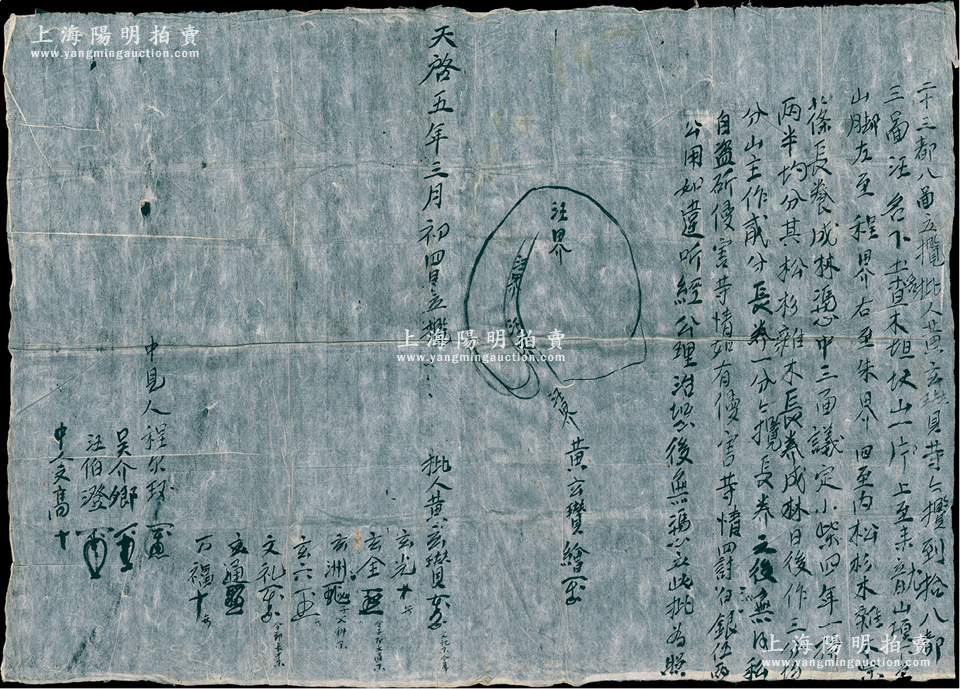 二十三都八啚立攬批人黃玄瓚等今攬到拾八都
三啚汪名下土名查木坦坟山一片上至 山頂下至
山脚左至程界右至朱界四至内松杉木雜木
長養成林憑中三面議定小柴四年一
兩半均分其松杉雜木長养成林日後作三分
分山主作貳分長养一分今攬長养之後無得私
自盜斫侵害等情如有侵害等情四罰白銀伍兩
公用如違听經公理治恐後無憑立此批為照
汪界
汪界
汪界
黃玄瓚繪
天啓五年三月初四日立攬
批人黃玄瓚
玄光十
玄全
玄洲
玄六
文礼
玄通
万福十
中見人程尔
吳介卿
汪伯澄
中文高十
上海陽明拍賣
www.yangmingauction.com
上海陽明拍賣
www.yangmingauction.com
上海陽明拍賣
www.yangmingauction.com